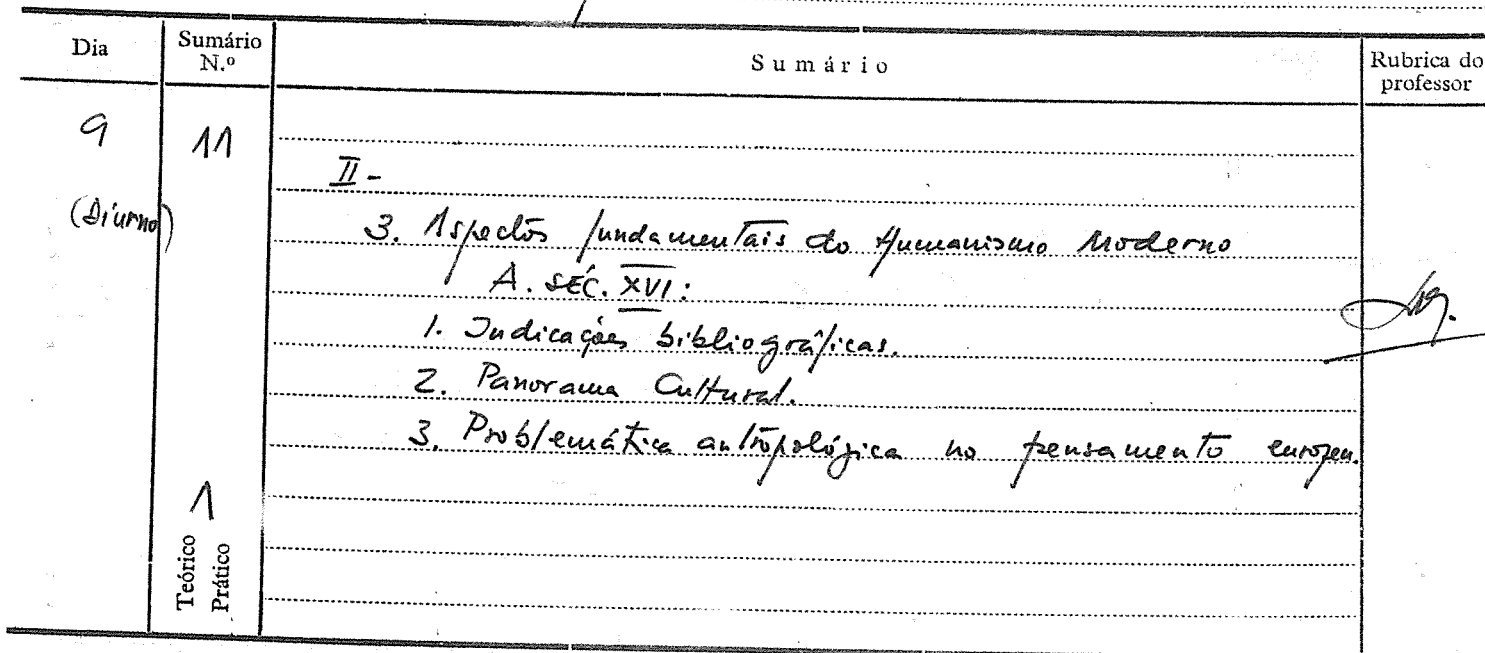 Dia
Sumário N.º
Sumário
Rubrica do professor
9
11
(Diurno)
II -
3. Aspectos fundamentais do Humanismo Moderno
A. SÉC. XVI:
1. Indicações bibliográficas.
2. Panorama Cultural.
3. Problemática antropológica no pensamento europeu.
1
Teórico
Prático